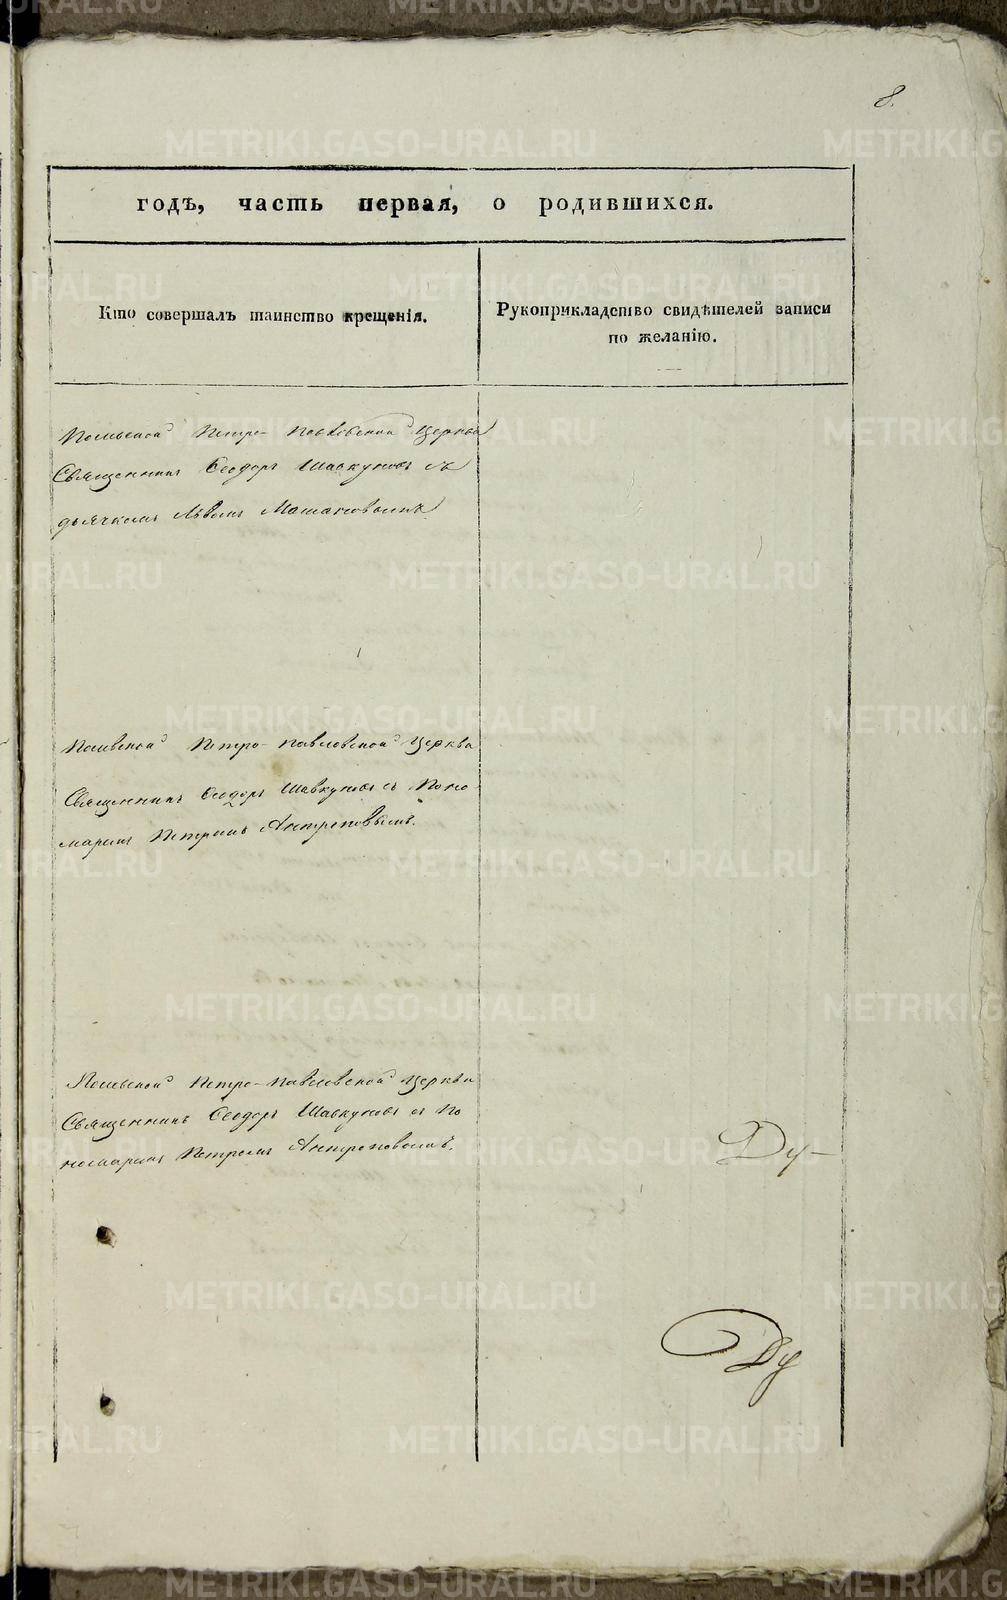 8.
годъ, часть первая, о родившихся.
Кто совершалъ таинство крещенія.
Рукоприкладство свидѣтелей записи
по желанію.
Полевской Петро-Павловской Церкви
Священникъ Ѳеодоръ Шавкуновъ съ
дьячкомъ Львомъ
Полевской Петро-Павловской Церкви
Священникъ Ѳеодоръ Шавкуновъ съ Поно-
маремъ Петромъ Антроповымъ.
Полевской Петро-Павловской Церкви
Священникъ Ѳеодоръ Шавкуновъ съ По
номаремъ Петромъ Антроповымъ.
Ду-
Ду
METRIKI.GASO-URAL.RU